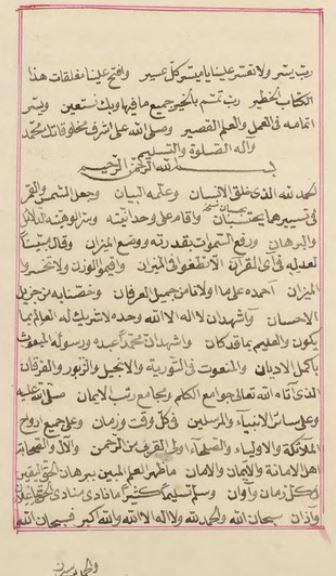 رب يسر ولا تعسر علينا يا ميسر كل عسير وافتح علينا مغلقات هذا
الكتاب الخطير رب تمم بالخير جميع ما فيها وبك نستعين ويسر
اتمامه في العمل والعلم القصير وصلى الله على اشرف مخلوقاتك محمد
وآله الصلوة والتسليم
بسم الله الرحمن الرحيم
الحمد لله الذى خلق الانسان وعلمه البيان وجعل الشمس والقمر
في تسييرها بحسبان واقام على وحدانيته الدلائل
والبرهان ورفع السموات بقدرته ووضع الميزان وقال
تعديله فى آى القرآن الا تطغوا فى الميزان واقيموا الوزن ولا تخسروا
الميزان احمده على ما اولانا من جميل العرفان وخصنا به من جزيل
الاحسان واشهد ان لا اله الا الله وحده لا شريك له العالم بما
يكون والعليم بما قد كان واشهد ان محمدا عبده ورسوله المبعوث
باكمل الاديان والمنعوت فى التورية والانجيل والزبور والفرقان
الذى آتاه الله تعالى جوامع الكلم ومجامع رتب الايمان صلى الله عليه
وعلى سائر الانبياء والمرسلين فى كل وقت وزمان وعلى جميع ارواح
الملائكة والاولياء والصلحاء من الرحمن والآل والصحابة
اهل الامانة والايمان والامان ما ظهر العلم المبين ببرهان الحق اليقين
وكل زمان وآوان وسلم تسليما كثيرا ما نادى منادى
وآذان سبحان الله والحمد لله ولا اله الا الله والله اكبر فسبحان الله